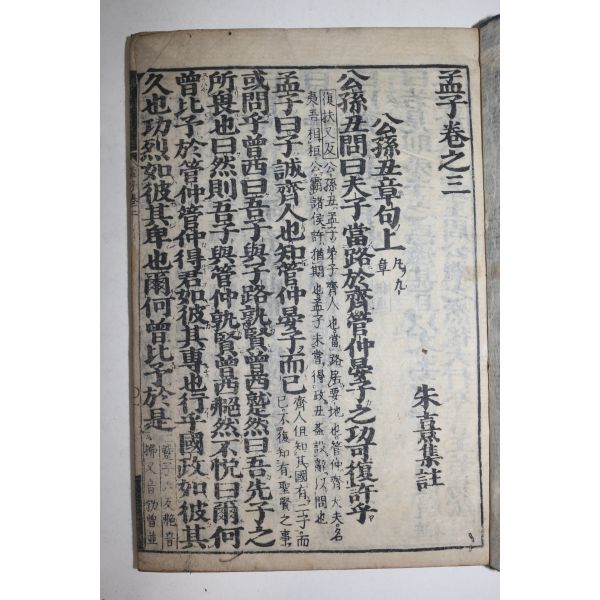 孟子卷之三
朱熹集註
公孫丑章句上
凡九
章
公孫丑問曰夫子當路於齊管仲晏子之功可復許乎
復扶又反
公孫丑孟子弟子齊人也當路居要地也管仲齊大夫名
夷吾相桓公霸諸侯許猶期也孟子未嘗得政丑蓋設辭以問也
孟子曰子誠齊人也知管仲晏子而已
齊人但知其國有二子而
已不復知有聖賢之事
或問乎曾西曰吾子與子路孰賢曾西蹵然曰吾先子之
所畏也曰然則吾子與管仲孰賢曾西艴然不悅曰爾何
曾比予於管仲管仲得君如彼其專也行乎國政如彼其
久也功烈如彼其卑也爾何曾比予於是
反艴音
拂又音勃曾並